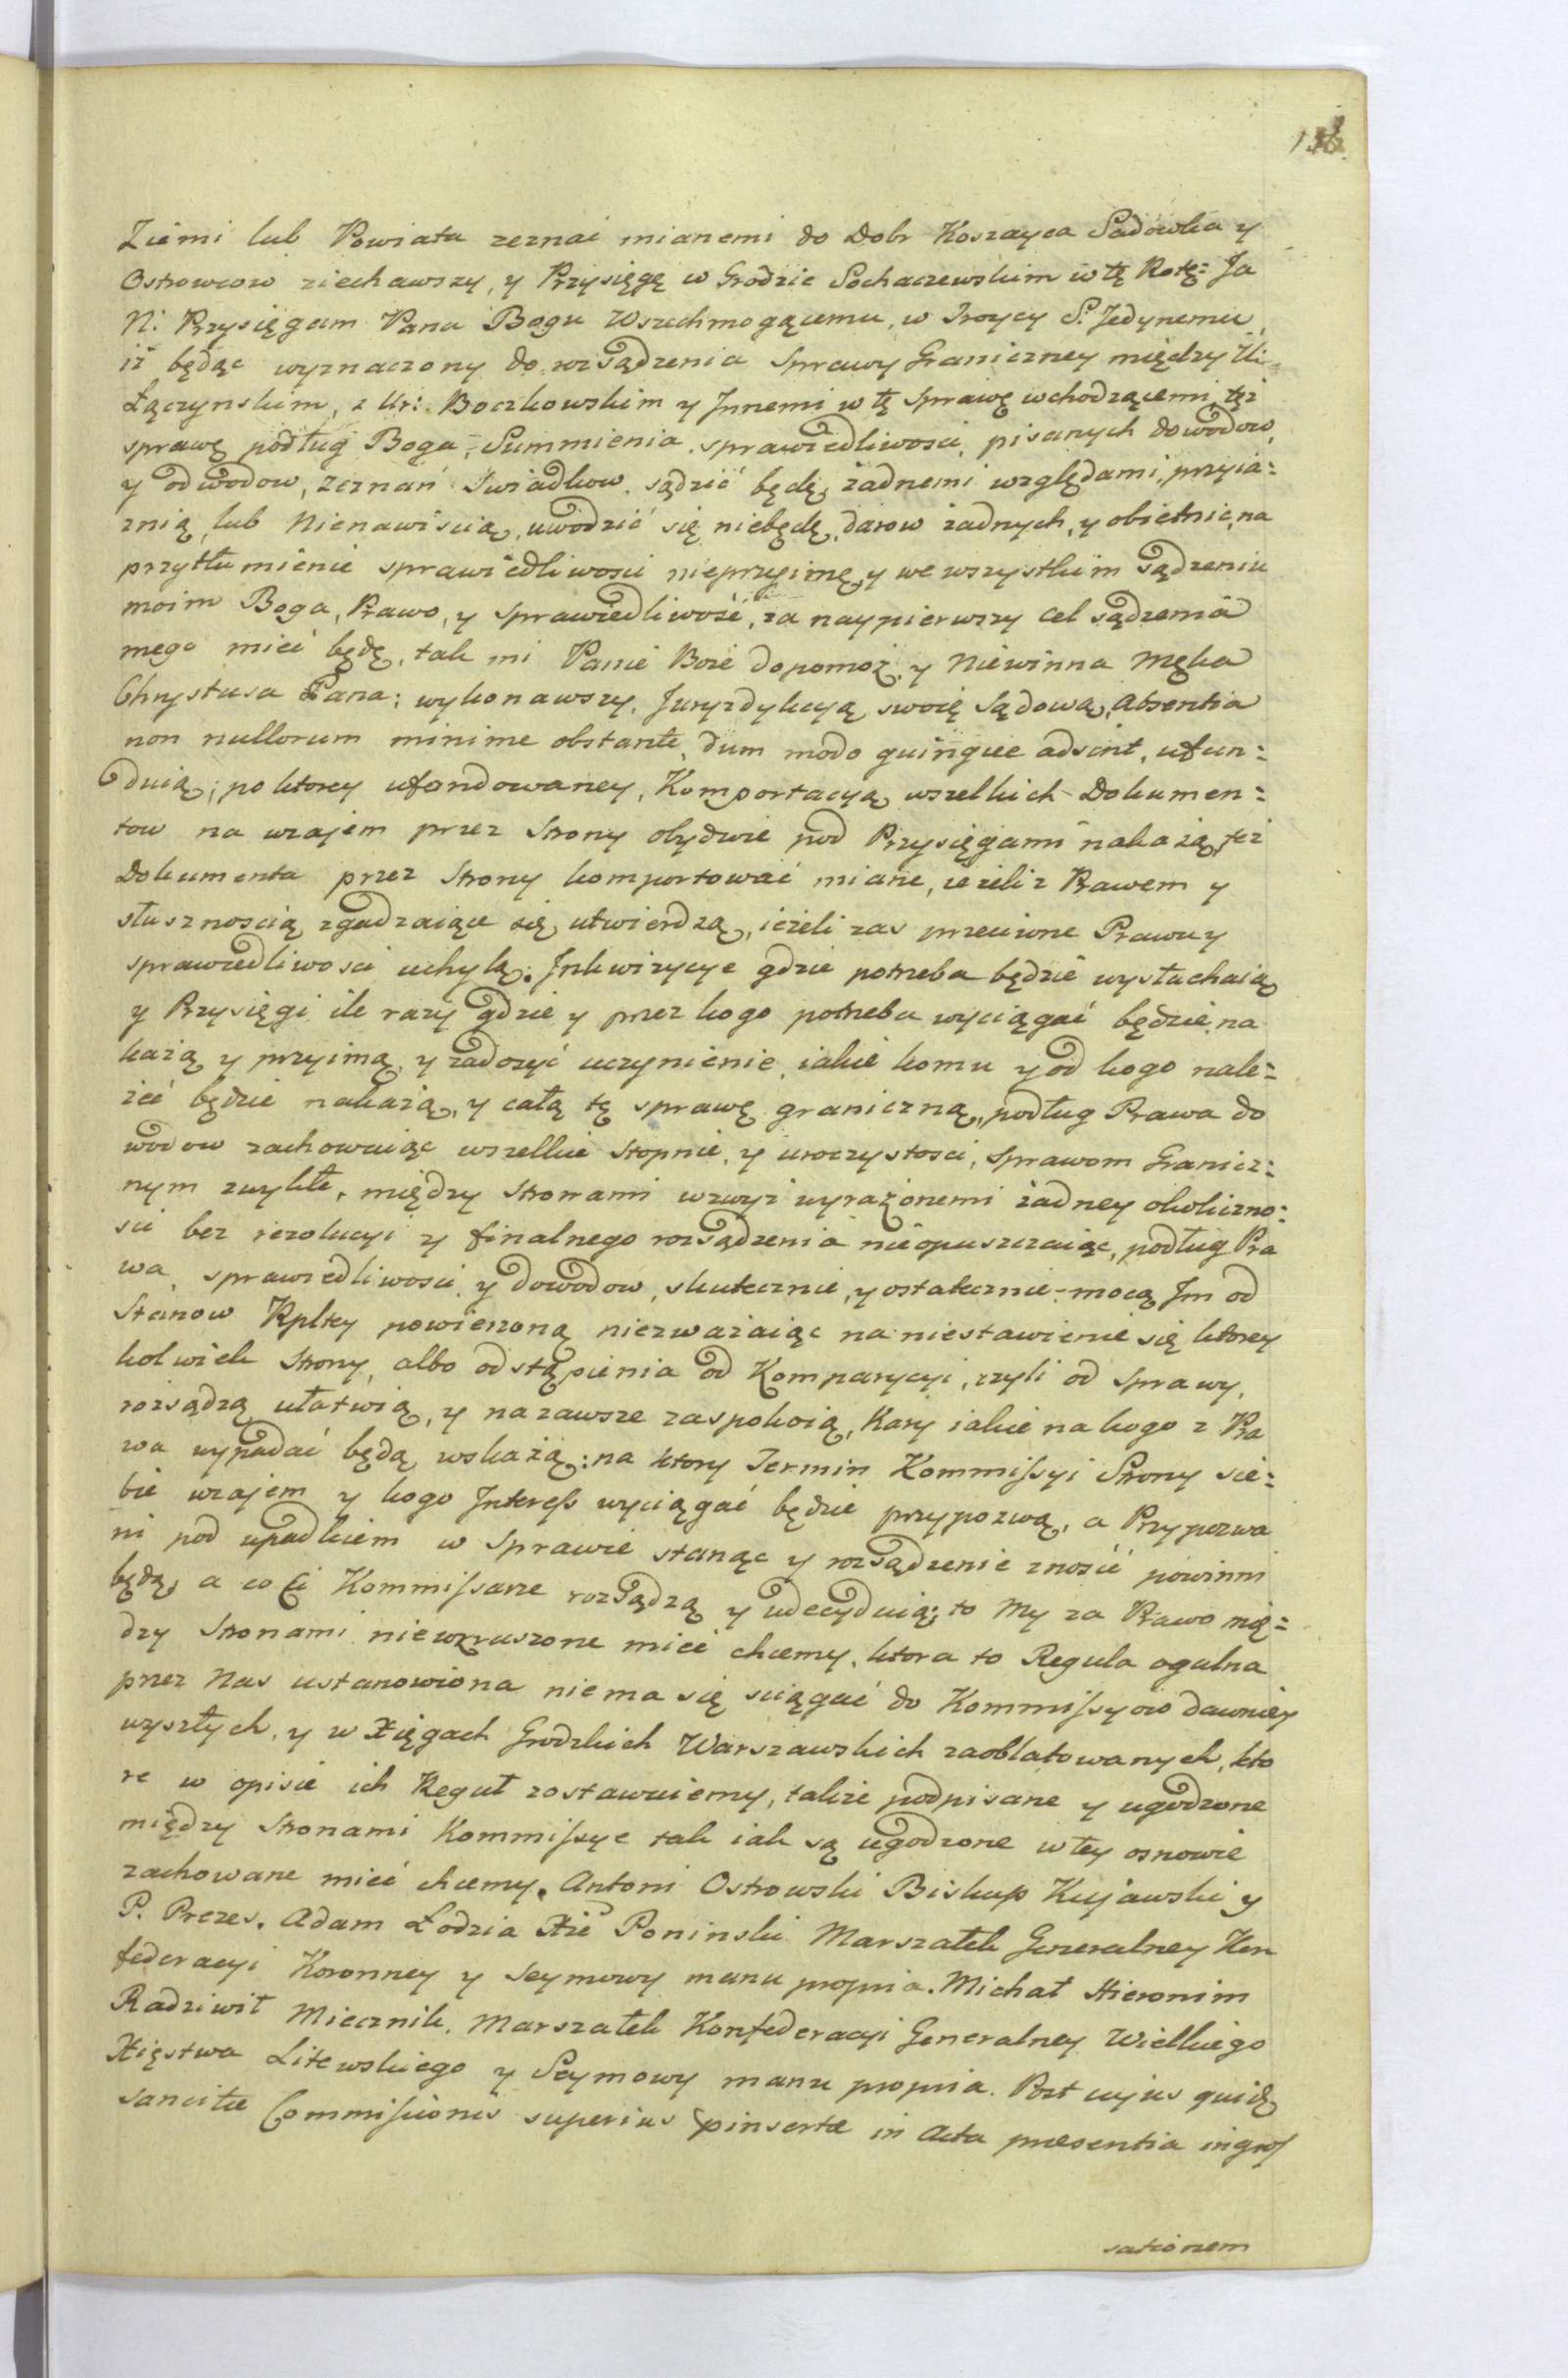 Ziemi lub Powiatu zeznać mianemi do Dobr Koszayca Sadowka y
Ostrowcow ziechawszy, y Przysięgę w Grodzie Sochaczewskim w tę Rotę: Ja
N: Przysięgam Panu Bogu Wszechmogącemu, w Troycy S. Jedynemu,
iż będąc wyznaczony do rozsądzenia Sprawy Graniczney między Ur:
Łączynskim, z Ur: Boczkowskim y Jnnemi w tę Sprawę wchodzącemi, tęż
sprawę podług Boga, Summienia, sprawiedliwosci, pisanych dowodow,
y odwodow, zeznań Swiadkow, sądzić będę, żadnemi względami, przyia=
znią, lub Nienawiscią, uwodzić się niebędę, darow żadnych, y obietnic, na
przytłumienie sprawiedliwosci nieprzyimę, y we wszystkim sądzeniu
moim Boga, Prawo, y Sprawiedliwość, za naypierwszy cel sądzenia
mego mieć będę, tak mi Panie Boże dopomoż, y Niewinna Męka
Chrystusa Pana; wykonawszy, Juryzdykcyą swoię Sądową, Absentia
non nullorum minime obstante, dum modo quinque adsint, ufun=
duią; po ktorey ufondowaney, Komportacyą wszelkich Dokumen=
tow na wzajem przez Strony obydwie pod Przysięgami nakażą, też
Dokumenta przez Strony komportować miane, ieżeli z Prawem y
słusznoscią zgadzaiące się, utwierdzą, ieżeli zas przeciwne Prawu y
sprawiedliwosci uchylą. Jnkwizycye gdzie potrzeba będzie wysłuchaią,
y Przysięgi ile razy gdzie y przez kogo potrzeba wyciągać będzie, na
każą y przyimą, y zadosyć uczynienie, iakie komu y od kogo nale=
żeć będzie nakażą, y całą tę sprawę graniczną, podług Prawa do
wodow zachowuiąc wszelkie Stopnie, y uroczystosci, Sprawom Granicz=
nym zwykłe, między Stronami wzwyż wyrażonemi żadney okoliczno=
sci bez rezolucyi y finalnego rozsądzenia nieopuszczaiąc, podług Pra
wa, sprawiedliwosci, y dowodow, skutecznie, y ostatecznie mocą Jm od
Stanow Rpltey powierzoną niezważaiąc na niestawienie się ktorey
kolwiek Strony, albo odstąpienia od Komparycyi, czyli od Sprawy,
rozsądzą ułatwią, y nazawsze zaspokoią, Kary iakie na kogo z Pra
wa wypadać będą wskażą: na ktory Termin Kommissyi Strony sie=
bie wzajem y kogo Jnteress wyciągać będzie przypozwą, a Przypozwa
ni pod upadkiem w Sprawie stanąc y rozsądzenie znosić powinni
będą, a co Ci Kommissarze rozsądzą y udecyduią; to My za Prawo mię=
dzy Stronami niewzruszone mieć chcemy, ktora to Regula ogulna
przez Nas ustanowiona niema się sciągać do Kommissyow dawniey
wyszłych, y w Xięgach Grodzkich Warszawskich zaoblatowanych, kto
re w opisie ich Reguł zostawuiemy, także podpisane y ugodzone
między Stronami Kommissye tak iak są ugodzone w tey osnowie
zachowane mieć chcemy. Antoni Ostrowski Biskup Kujawski y
P. Prezes. Adam Łodzia Xże Poninski Marszałek Generalney Kon
federacyi Koronney y Seymowy manu propria. Michał Hieronim
Radziwił Miecznik, Marszałek Konfederacyi Generalney Wielkiego
Xięstwa Litewskiego y Seymowy manu propria. Post cujus quidę
Sancitæ Commissionis superius insertæ in Acta præsentia ingros
sationem